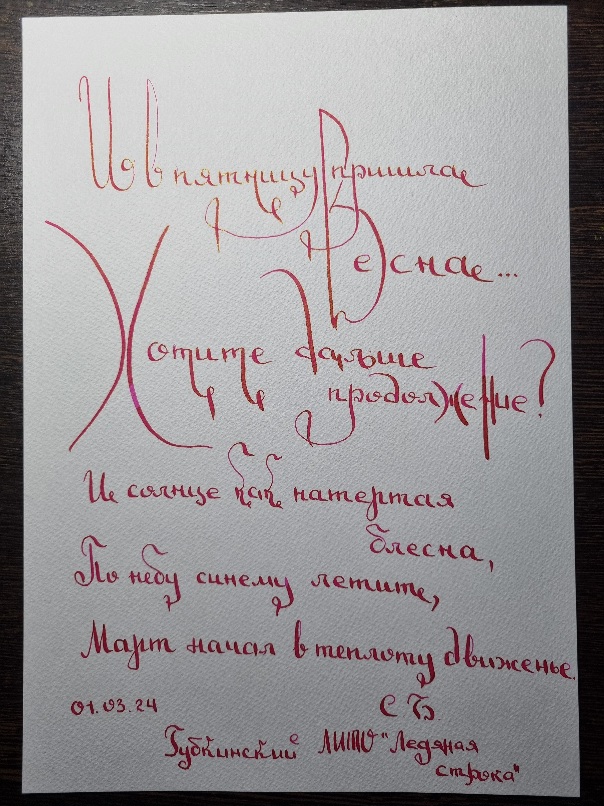 И в пятницу пришла
Весна...
Хотите дальше
продолжение?
И солнце как натертая
блесна,
По небу синему летит,
Март начал в теплоту движенье.
01.03.24 С Б
Губкинский ЛИТО "Ледяная
строка"